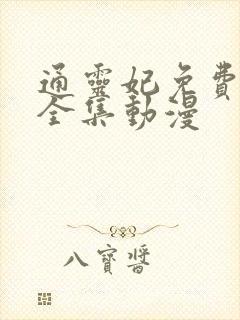 通靈妃免費
全集動漫
八寶醬